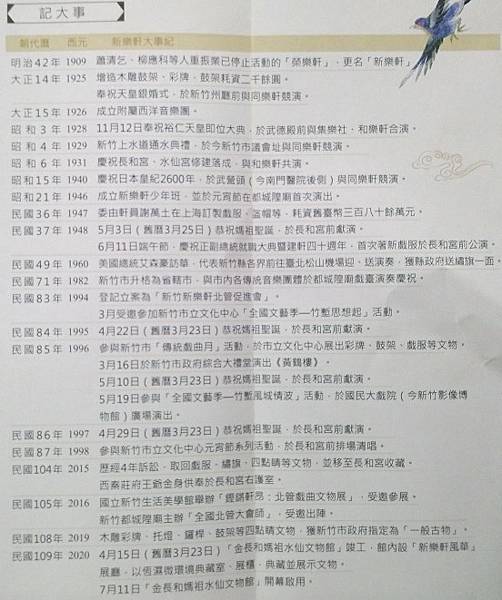 記大事
朝代曆 西元 新樂軒大事紀
明治42年 1909 蕭清乞、柳應科等人重振業已停止活動的「榮樂軒」,更名「新樂軒」。
大正14年 1925 增造木雕鼓架、彩牌,鼓架耗資二千餘圓。
奉祝天皇銀婚式,於新竹州廳前與同樂軒競演。
大正15年 1926 成立附屬西洋音樂團。
昭和3年 1928 11月12日奉祝裕仁天皇即位大典,於武德殿前與集樂社、和樂軒合演。
昭和4年 1929 新竹上水道通水典禮,於今新竹市議會址與同樂軒競演。
昭和6年 1931 慶祝長和宮、水仙宮修建落成,與和樂軒共演。
昭和15年 1940 慶祝日本皇紀2600年,於武營頭(今南門醫院後側)與同樂軒競演。
昭和21年 1946 成立新樂軒少年班,並於元宵節在都城隍廟首次演出。
民國36年 1947 委由軒員謝萬士在上海訂製戲服、盔帽等,耗資舊臺幣三百八十餘萬元。
民國37年 1948 5月3日(舊曆3月25日)恭祝媽祖聖誕,於長和宮前獻演。
6月11日端午節,慶祝正副總統就職大典暨建軒四十週年,首次著新戲服於長和宮前公演。
民國49年 1960 美國總統艾森豪訪華,代表新竹縣各界前往臺北松山機場迎、送演奏,獲縣政府送繡旗一面。
民國71年 1982 新竹市升格為省轄市,與市內各傳統音樂團體於都城隍廟戲臺演奏慶祝。
民國83年 1994 登記立案為「新竹新樂軒北管促進會」。
3月受邀參加新竹市立文化中心「全國文藝季—竹塹思想起」活動。
民國84年 1995 4月22日(舊曆3月23日)恭祝媽祖聖誕,於長和宮前獻演。
民國85年 1996 參與新竹市「傳統戲曲月」活動,於市立文化中心展出彩牌、鼓架、戲服等文物。
3月16日於新竹市政府綜合大禮堂演出《黃鶴樓》。
5月10日(舊曆3月23日)恭祝媽祖聖誕,於長和宮前獻演。
5月19日參與「全國文藝季—竹塹風城情波」活動,於國民大戲院(今新竹影像博
物館)廣場演出。
民國86年 1997 4月29日(舊曆3月23日)恭祝媽祖聖誕,於長和宮前獻演。
民國87年 1998 參與新竹市立文化中心元宵節系列活動,於長和宮前排場清唱。
民國104年 2015 歷經4年訴訟,取回戲服、繡旗、四點睛等文物,並移至長和宮收藏。
西秦莊府王爺金身供奉於長和宮右護室。
民國105年 2016 國立新竹生活美學館舉辦「鏗鏘軒昂:北管戲曲文物展」,受邀參展。
新竹都城隍廟主辦「全國北管大會師」,受邀出陣。
民國108年 2019 木雕彩牌、托燈、鑼桿、鼓架等四點睛文物,獲新竹市政府指定為「一般古物」。
民國109年 2020 4月15日(舊曆3月23日)「金長和媽祖水仙文物館」竣工,館內設「新樂軒風華」
展廳,以恆濕微環境典藏室、展櫃,典藏並展示文物。
7月11日「金長和媽祖水仙文物館」開幕啟用。